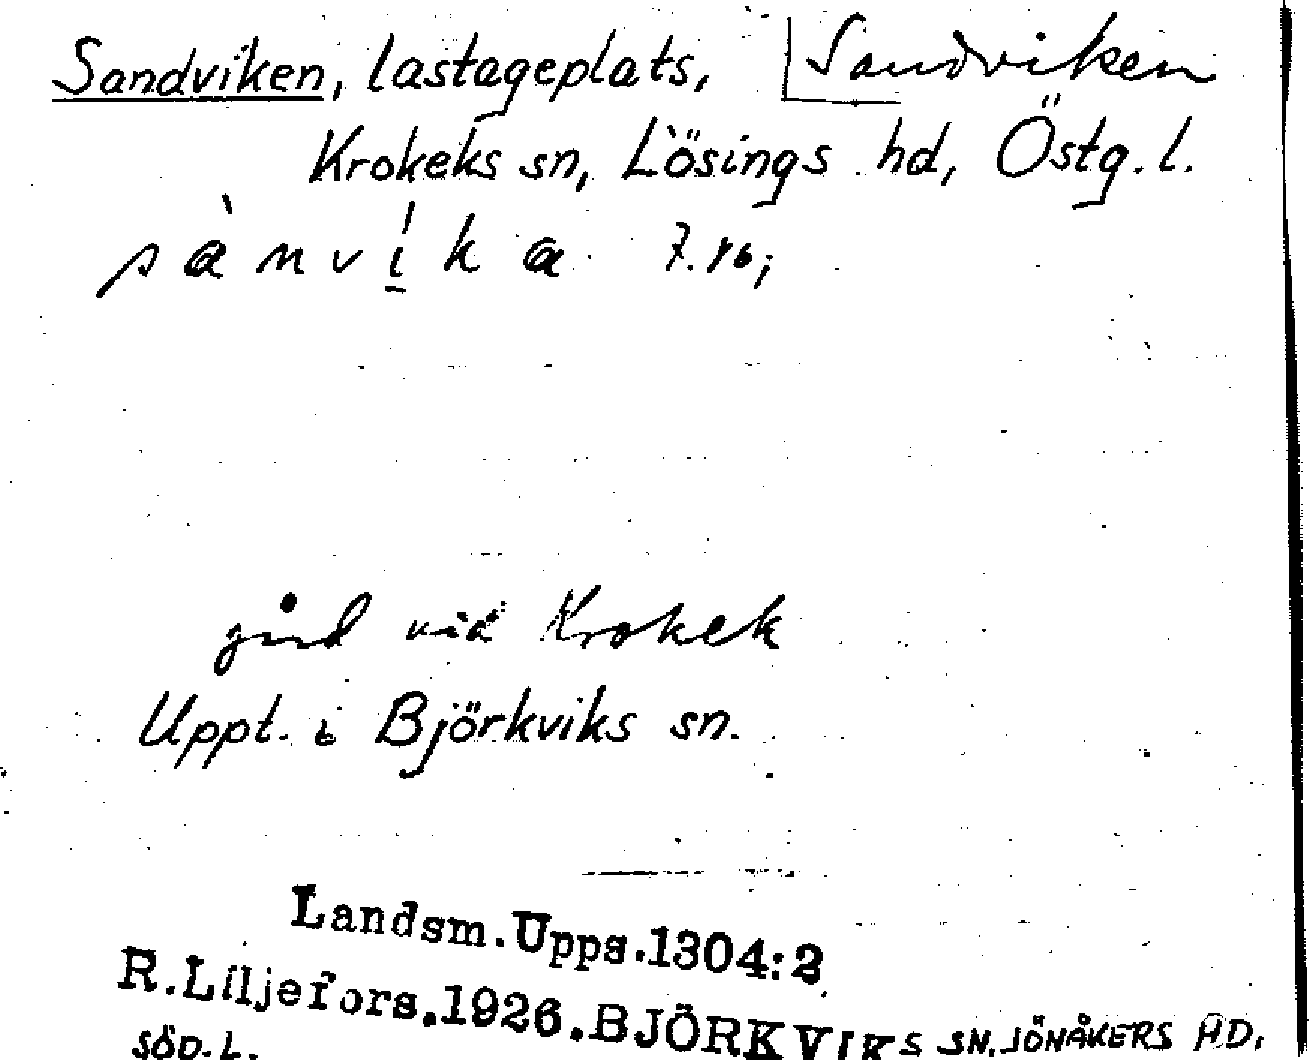 Sandviken, lastageplats, Sandviken
Krokeks sn, Lösings hd, Östg. l.
sànvíka
gård vid Krokek
Uppt. i Björkviks sn.
Landsm.Upps.1304:2
R.Liljefors.1926.BJÖRKVIKS SN. JÖNÅKERS HD,
SÖD. L.